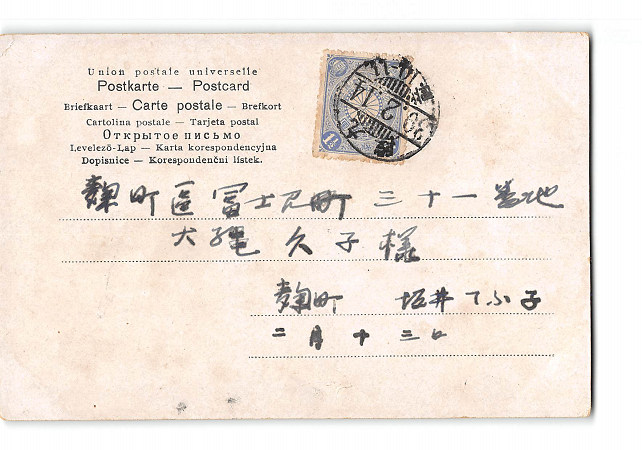 Union postale universelle
Postkarte — Postcard
Briefkaart — Carte postale — Brefkort
Cartolina postale — Tarjeta postal
Открытое письмо
Levelező-Lap — Karta korespondencyjna
Dopisnice — Korespondenční lístek.
1½
2.14
麹町區冨士見町 三十一番地
犬縄 久子様
麹町 坂井てふ子
二月十三日